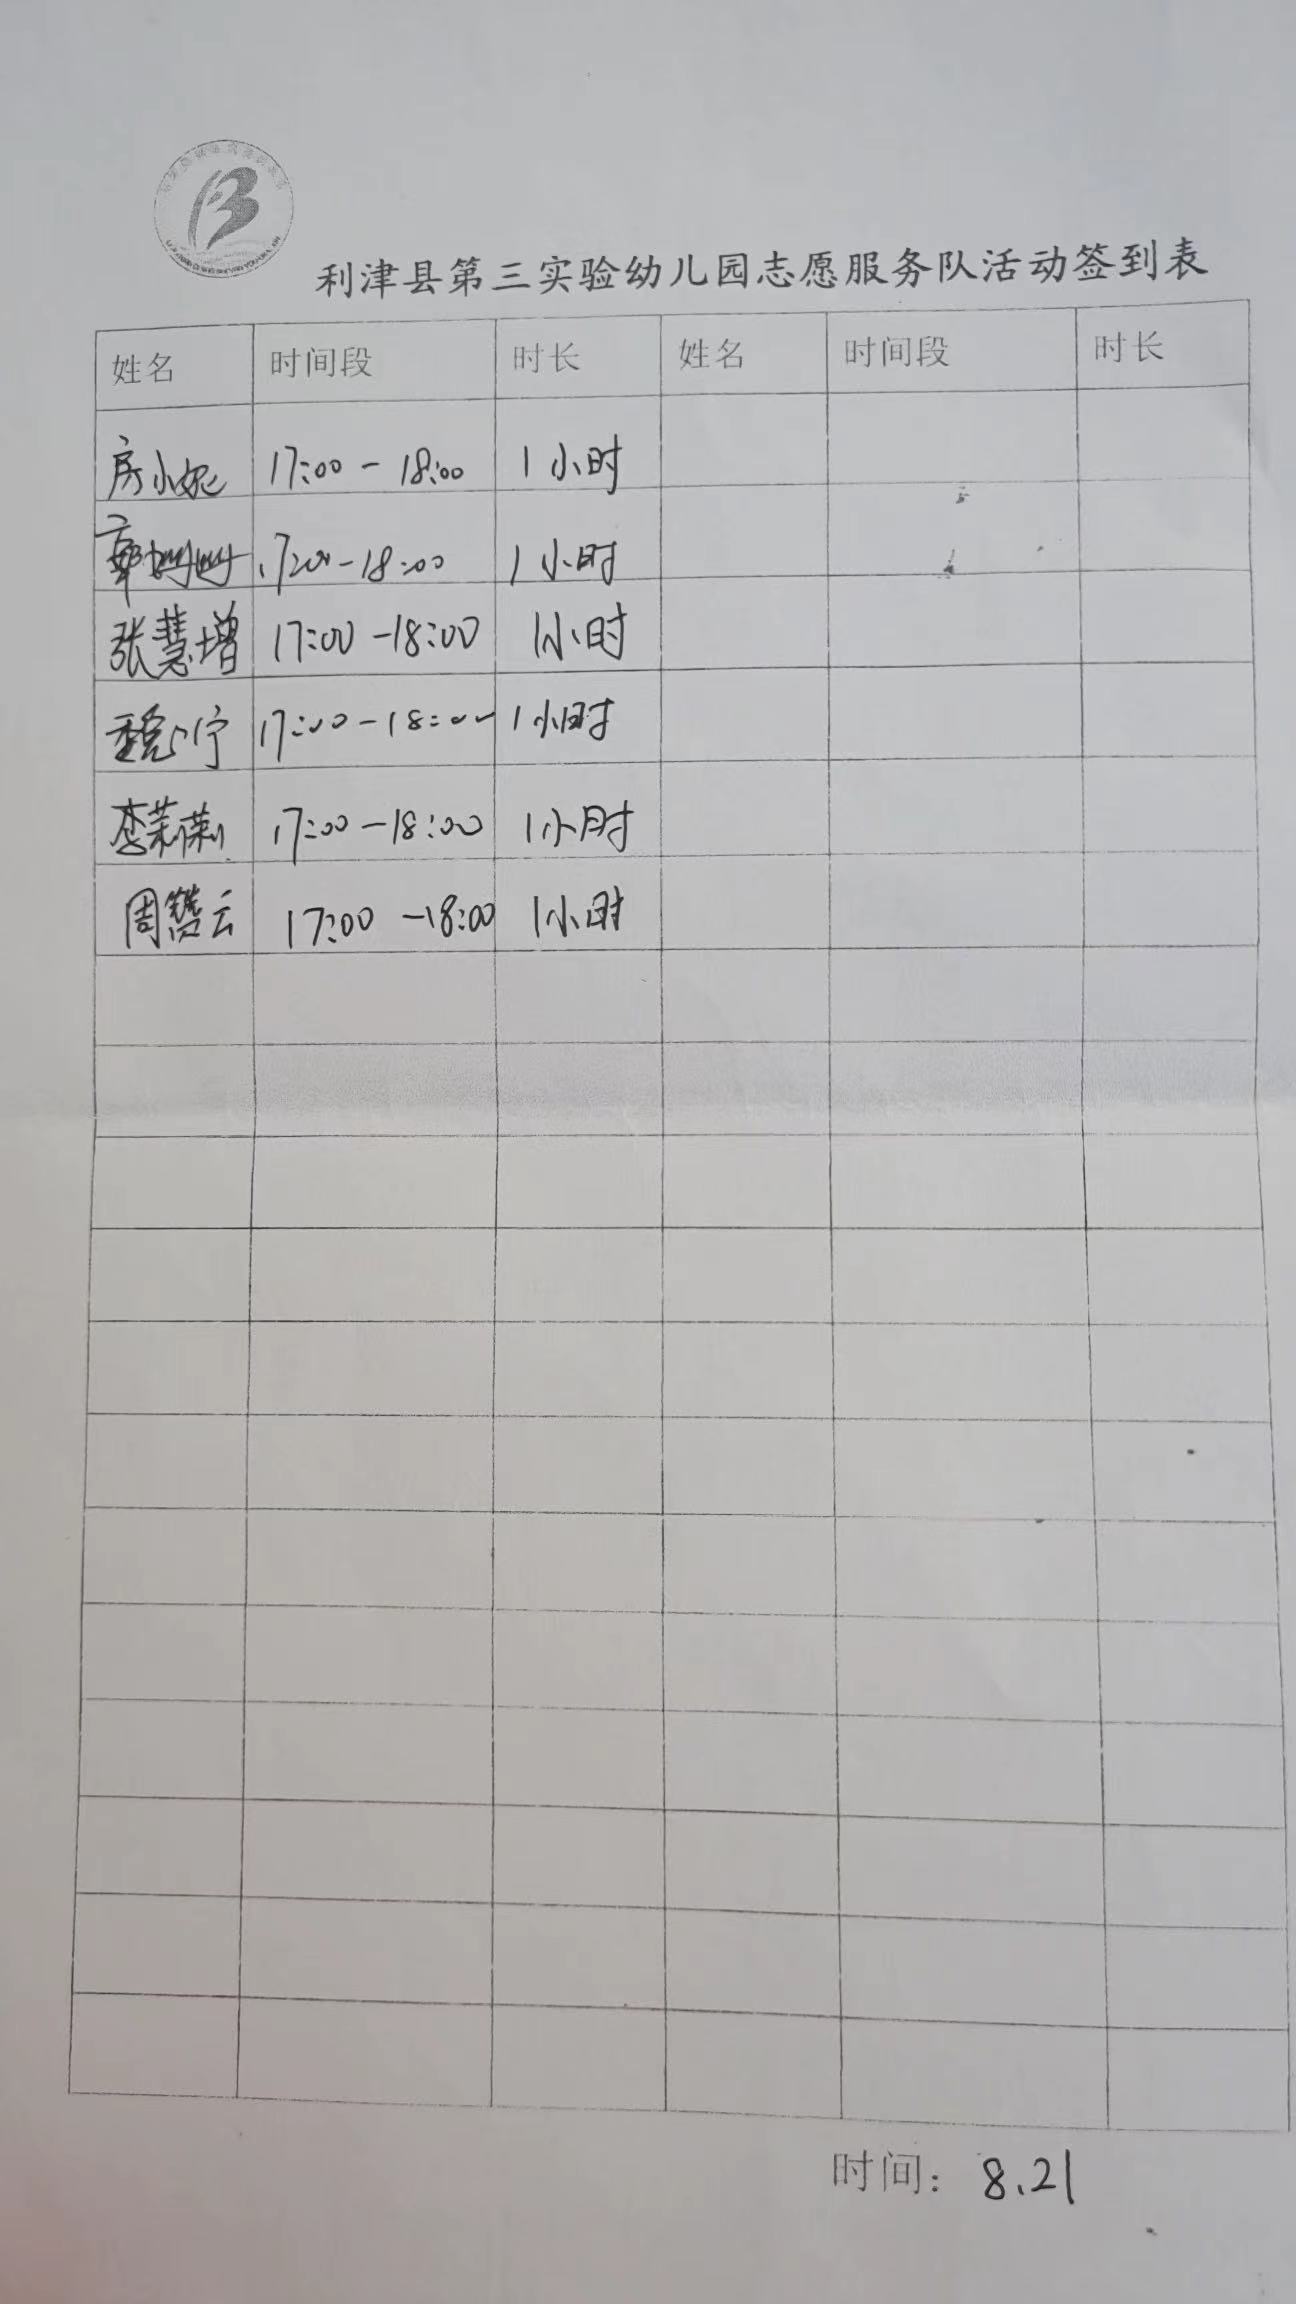 利津县第三实验幼儿园志愿服务队活动签到表
姓名 时间段 时长 姓名 时间段 时长
房小妮 17:00-18:00 1小时
17:00-18:00 1小时
张慧增 17:00-18:00 1小时
17:00-18:00 1小时
李茉莉 17:00-18:00 1小时
周赞云 17:00-18:00 1小时
时间：8.21